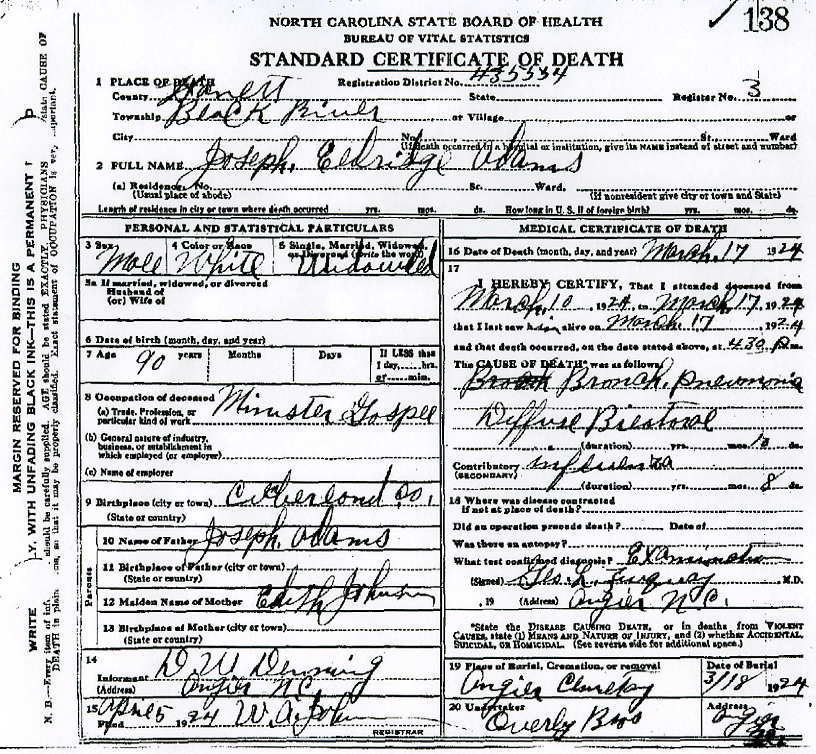 138
NORTH CAROLINA STATE BOARD OF HEALTH
BUREAU OF VITAL STATISTICS
STANDARD CERTIFICATE OF DEATH
1 PLACE OF DEATH Registration District No. 435534
County Harnett State Register No. 3
Township Black River or Village or
City No. St. Ward
(If death occurred in a hospital or institution, give its NAME instead of street and number)
2 FULL NAME Joseph. Eldridge Adams
(a) Residence. No. St. Ward.
(Usual place of abode) (If nonresident give city or town and State)
Length of residence in city or town where death occurred yrs. mos. ds. How long in U. S. if of foreign birth? yrs. mos. ds.
PERSONAL AND STATISTICAL PARTICULARS
3 Sex 4 Color or Race 5 Single, Married, Widowed, or Divorced (write the word)
Male White Widowed
5a If married, widowed, or divorced
Husband of
(or) Wife of
6 Date of birth (month, day, and year)
7 Age 90 years Months Days If LESS than
1 day, hrs.
or min.
8 Occupation of deceased
(a) Trade, Profession, or
particular kind of work Minister Gospel
(b) General nature of industry,
business, or establishment in
which employed (or employer)
(c) Name of employer
9 Birthplace (city or town)
(State or country)
Parents
10 Name of Father Joseph. Adams
11 Birthplace of Father (city or town)
(State or country)
12 Maiden Name of Mother Edith Johnson
13 Birthplace of Mother (city or town)
(State or country)
14
Informant D. W. Denning
(Address) Angier NC
15
Filed April 5 1924 W. A.
REGISTRAR
MEDICAL CERTIFICATE OF DEATH
16 Date of Death (month, day, and year) March. 17 1924
17
I HEREBY CERTIFY, That I attended deceased from
March, 10, 1924, to March 17, 1924
that I last saw him alive on March. 17 1924
and that death occurred, on the date stated above, at 4.30 P m.
The CAUSE OF DEATH* was as follows:
Bronch. pneumonia
Diffuse
(duration) yrs. mos. ds.
Contributory Influenza
(SECONDARY)
(duration) yrs. mos. 8 ds.
18 Where was disease contracted
if not at place of death?
Did an operation precede death? Date of
Was there an autopsy?
What test confirmed diagnosis? Examination
(Signed) M.D.
, 19 (Address) Angier N.C.
*State the DISEASE CAUSING DEATH, or in deaths from VIOLENT
CAUSES, state (1) MEANS AND NATURE OF INJURY, and (2) whether ACCIDENTAL,
SUICIDAL, or HOMICIDAL. (See reverse side for additional space.)
19 Place of Burial, Cremation, or removal Date of Burial
Angier 3/18 1924
20 Undertaker Address
Overby Bros Angier
MARGIN RESERVED FOR BINDING
WRITE
Y, WITH UNFADING BLACK INK—THIS IS A PERMANENT
N. B.—Every item of inf should be carefully supplied. AGE should be stated EXACTLY. PHYSICIANS state CAUSE OF
DEATH in plain so that it may be properly classified. Exact statement of OCCUPATION is very